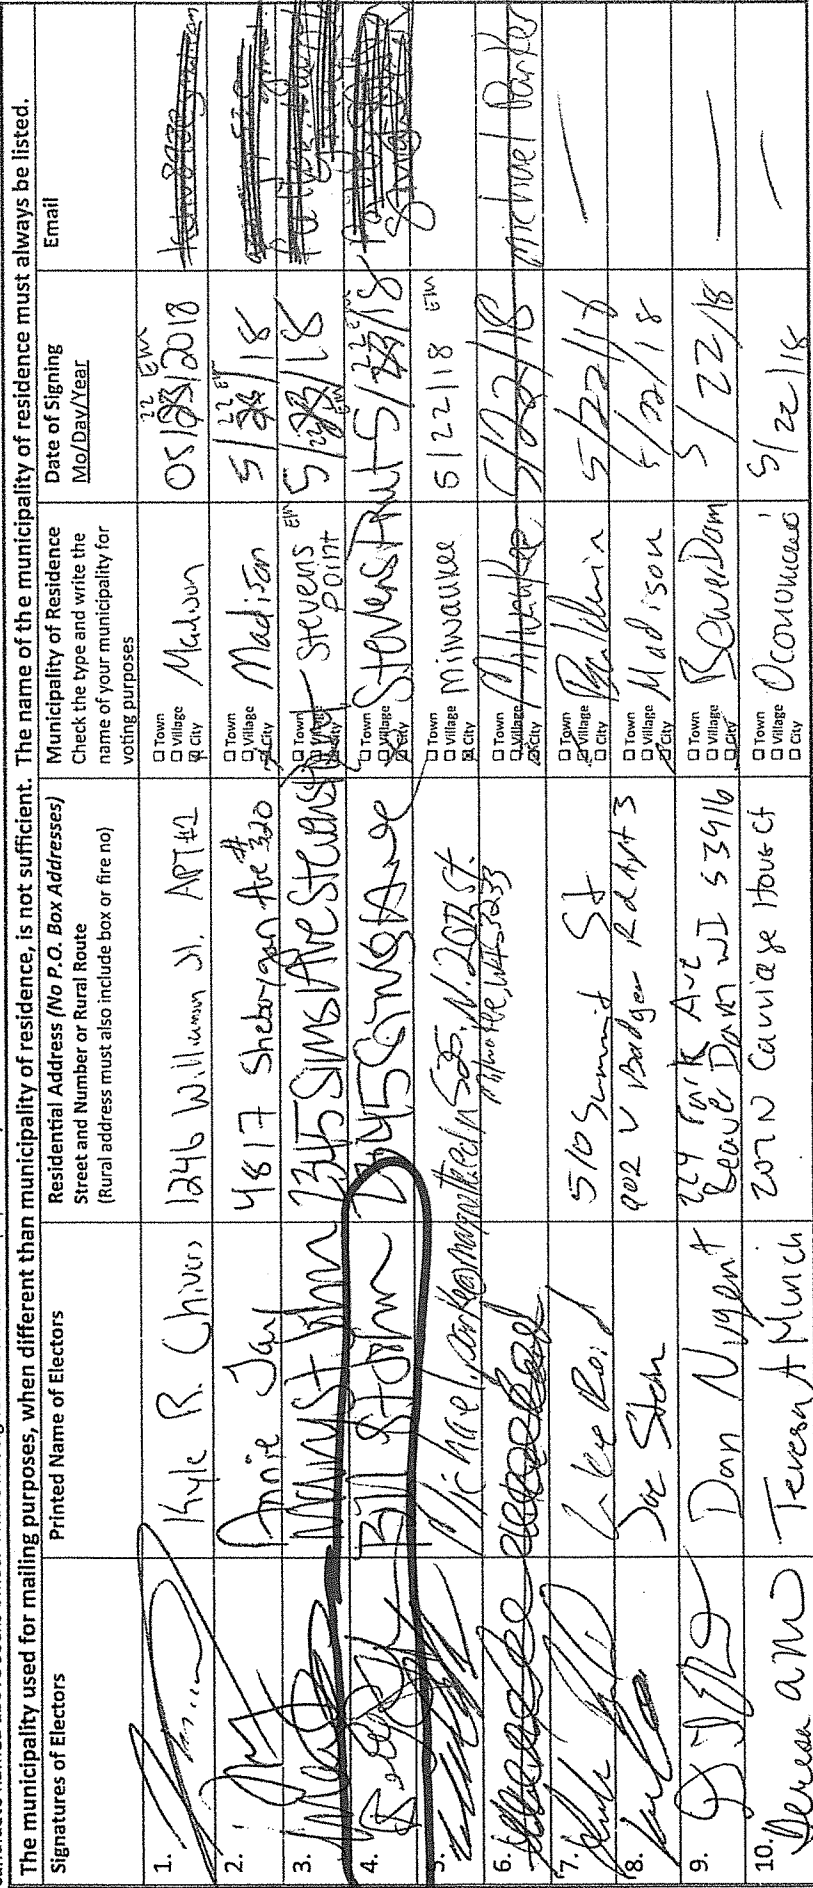 The municipality used for mailing purposes, when different than municipality of residence, is not sufficient. The name of the municipality of residence must always be listed.
Signatures of Electors
Printed Name of Electors
Residential Address (No P.O. Box Addresses)
Street and Number or Rural Route
(Rural address must also include box or fire no)
Municipality of Residence
Check the type and write the
name of your municipality for
voting purposes
Date of Signing
Mo/Day/Year
Email
1.
Kyle R. Chivers
1246 Williamson St. APT #1
Town
Village
City
Madison
22 EM
05/23/2018
2.
Annie Jay
4817 Sheboygan Ave #320
Town
Village
City
Madison
22 EM
5/23/18
3.
Mary St John
2345 Sims Ave Stevens Point
Town
Village
City
Stevens Point
EM
5/23/18
22 EM
4.
Bill St John
2345 Sims Ave
Town
Village
City
Stevens Point
22 EM
5/23/18
5.
Michael.parker@
525. N. 20th St.
Milwaukee, WI 53233
Town
Village
City
Milwaukee
5/22/18 EM
6.
Town
Village
City
Milwaukee
5/22/18
Michael Parker
7.
510 Summit St
Town
Village
City
Baldwin
5/22/18
—
8.
Joe Stein
902 W Badger Rd Apt 3
Town
Village
City
Madison
5/22/18
9.
Dan Nugent
224 Park Ave
Beaver Dam WI 53916
Town
Village
City
Beaver Dam
5/22/18
—
10.
Teresa A Munch
207 N Carriage House Ct
Town
Village
City
Oconomowoc
5/22/18
—